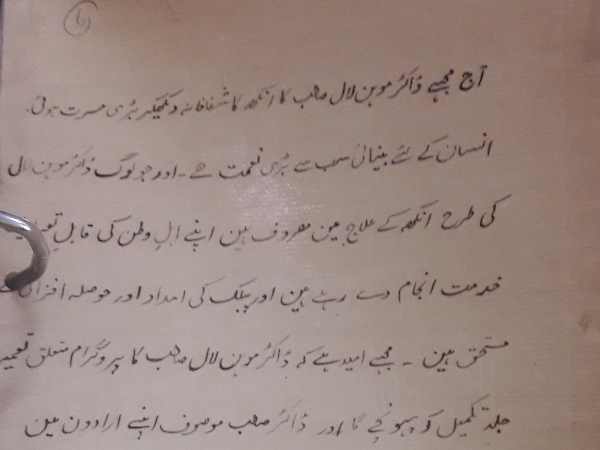 (۱)
آج مجھے ڈاکٹر موہن لال صاحب کا آنکھ کا شفاخانہ دیکھکر بڑی مسرت ہوئی۔
انسان کے لئے بینائی سب سے بڑی نعمت ہے ۔ اور جو لوگ ڈاکٹر موہن لال
کی طرح آنکھ کے علاج مین مصروف ہین اپنے اہل وطن کی قابل
خدمت انجام دے رہے ہین اور پبلک کی امداد اور حوصلہ افزائی کے
مستحق ہین ۔ مجھے امید ہے کہ ڈاکٹر موہن لال صاحب کا پروگرام متعلق تعمیر
جلد تکمیل کو پہونچے گا اور ڈاکٹر صاحب موصوف اپنے ارادون مین